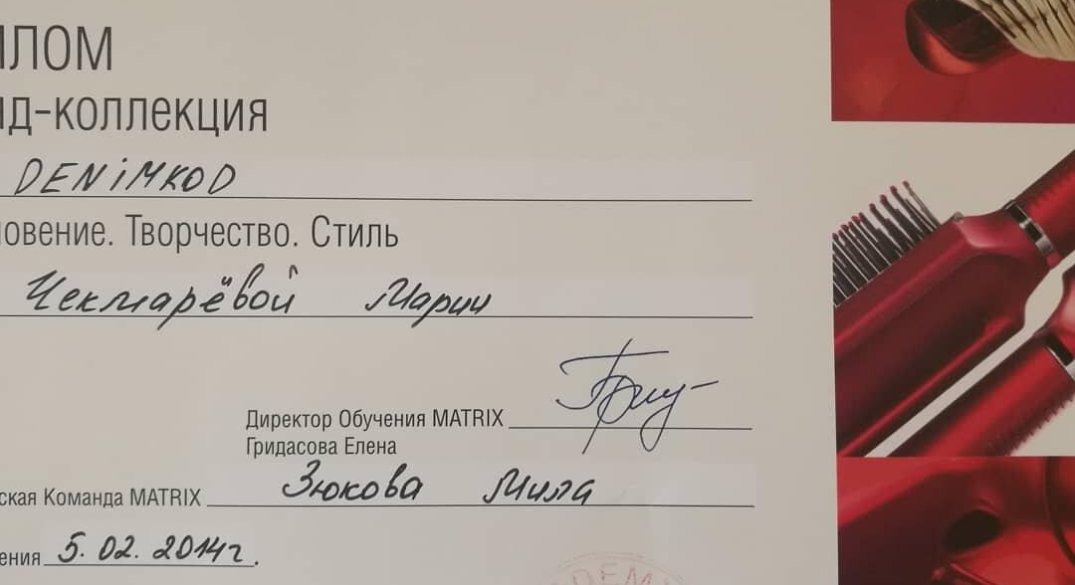 ПЛОМ
нд-коллекция
DENiMKOD
новение. Творчество. Стиль
Чекмарёвой Марии
Директор Обучения MATRIX
Гридасова Елена
ская Команда MATRIX Зюкова Мила
ения 5.02.2014г.
DEM